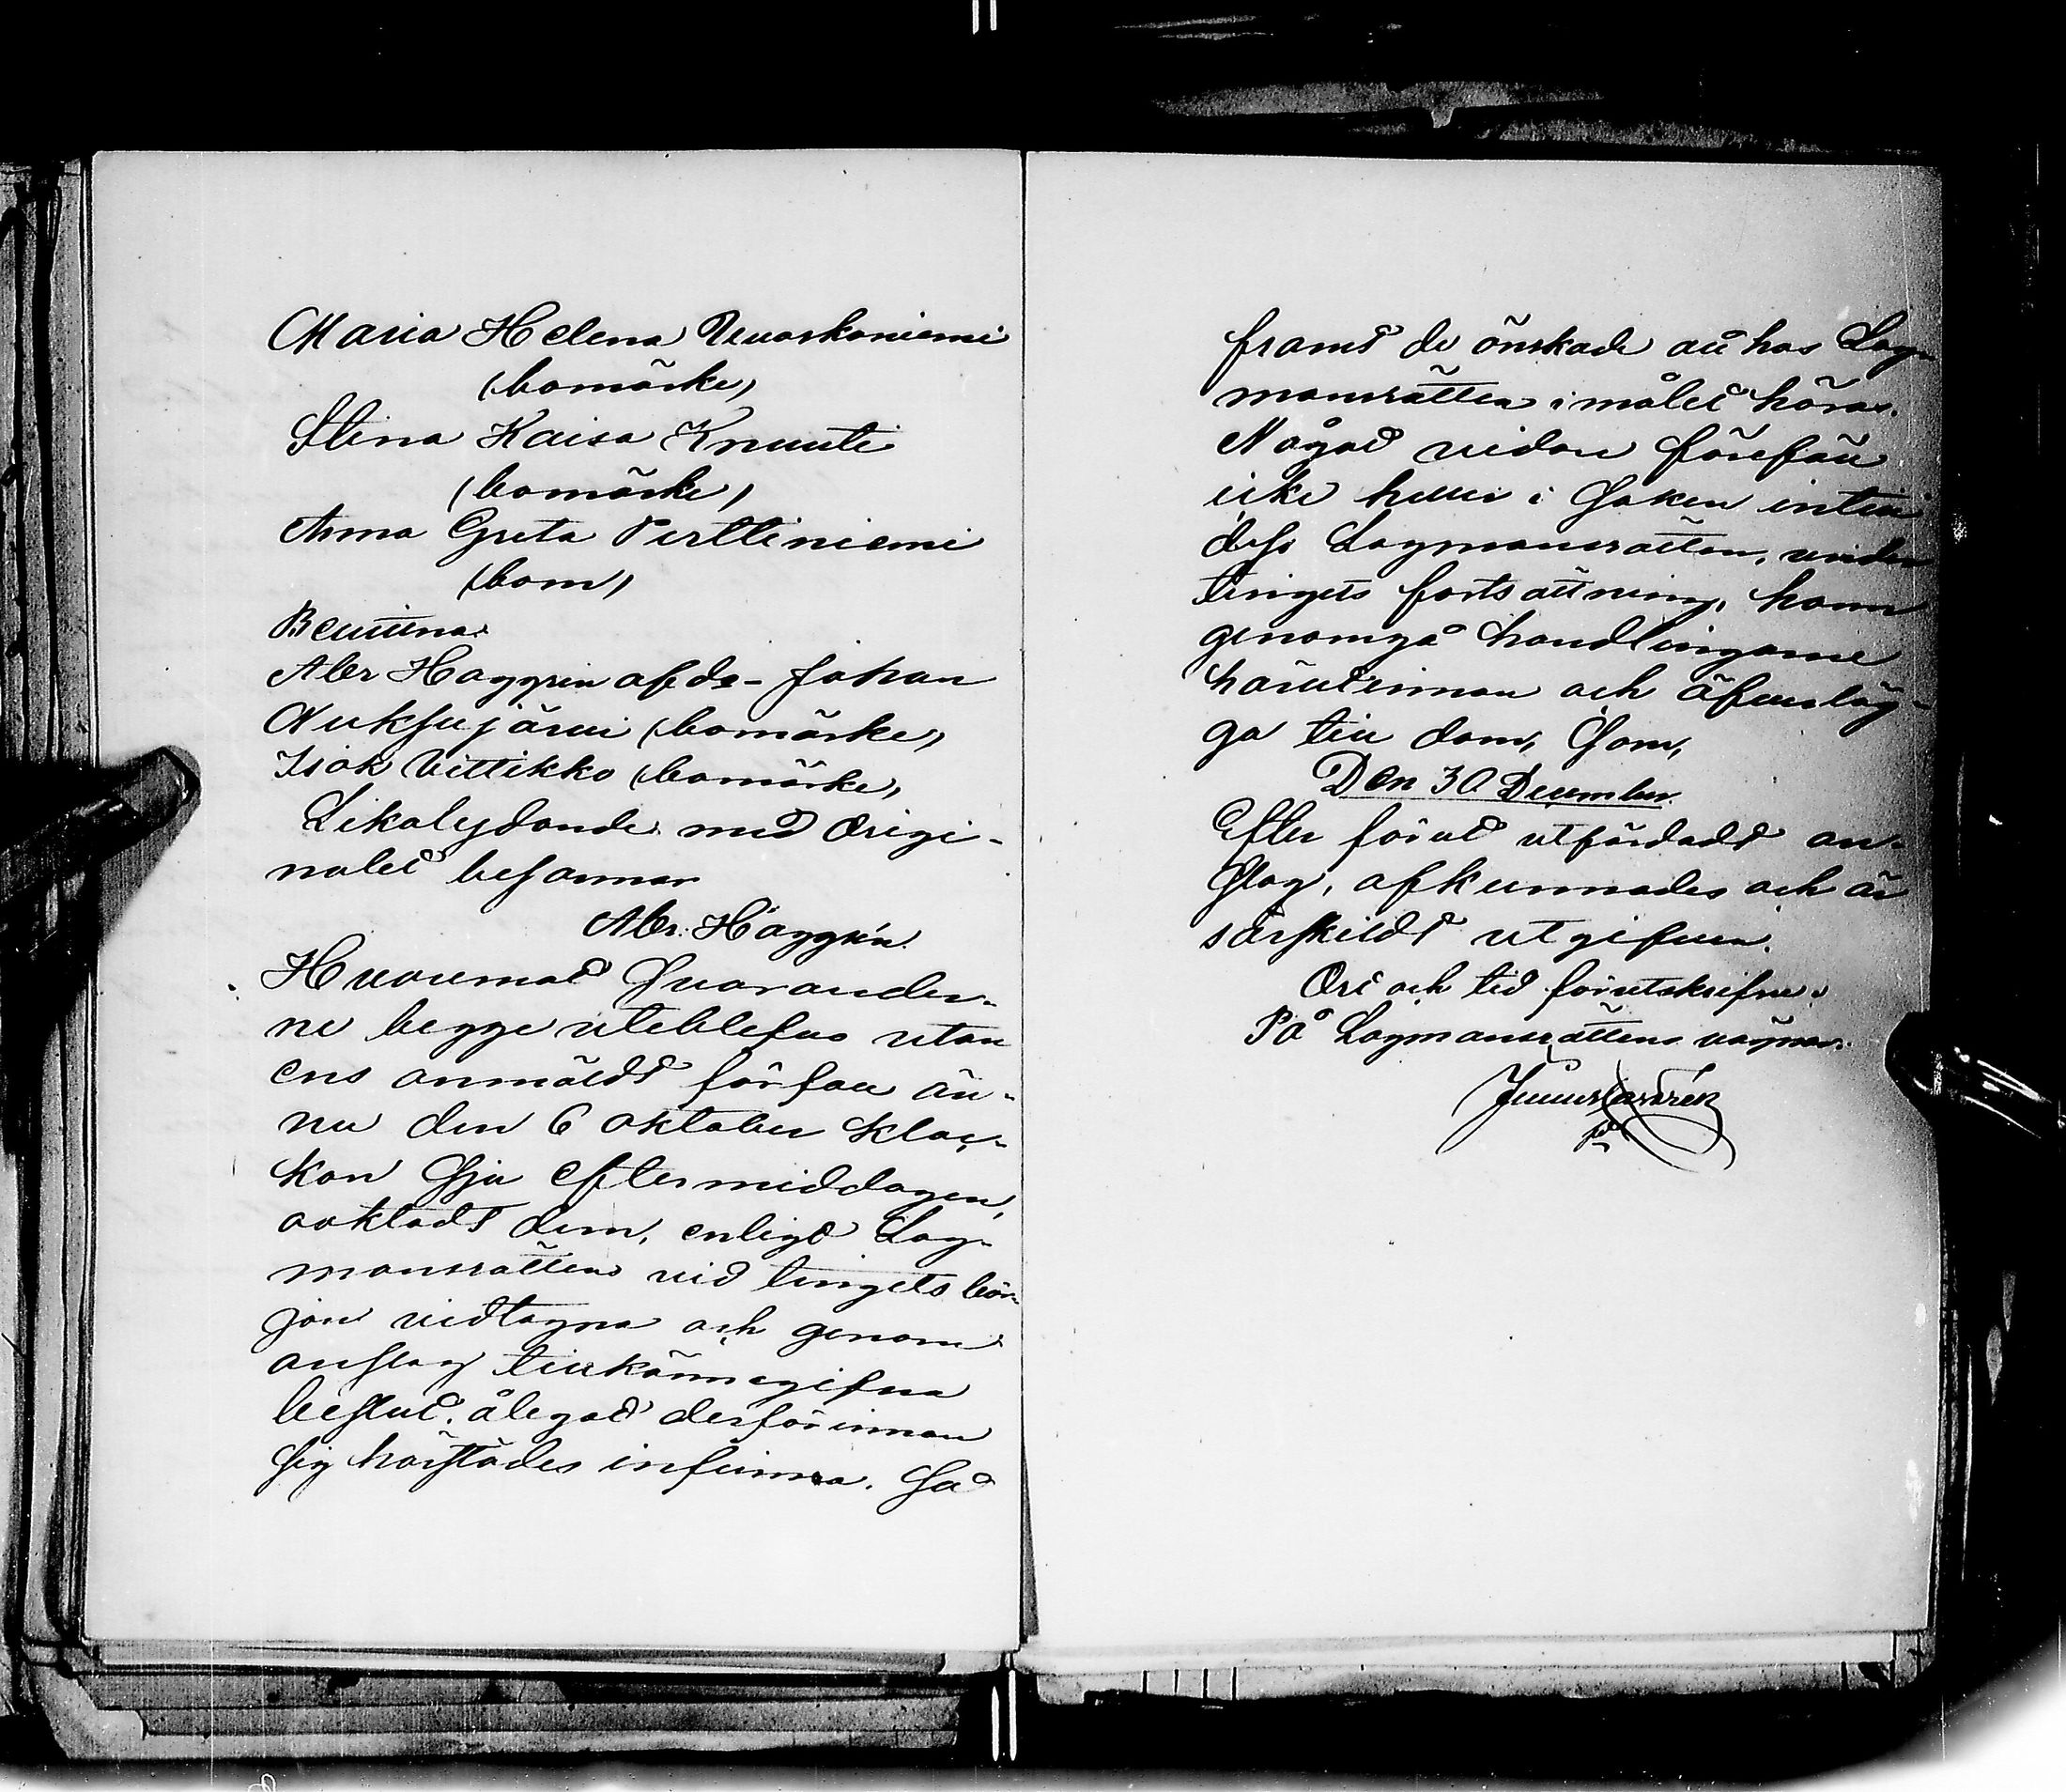 Maria Helena Vuoskoniemi
(bomärke)
Stina Kaisa Knuuti
(bomärke)
Anna Greta Perttiniemi
(bom)
Bevittna:
Abr Häggrén afds- Johan
Nuksujärvi (bomärke)
Isak Vittikko (bomärke)
Likalydande med Origi-
nalet besannar
Abr: Häggrén.
Hvaremot Svarander-
ne begge uteblefvo utan
ens anmäldt förfall än-
nu den 6 oktober kloc-
kan sju eftermiddagen,
oaktadt dem, enligt Lag-
mansrättens vid tingets bör-
jan vidtagna och genom
anslag tillkännagifna
beslut, ålegat derförinnan
sig härstädes infinna, så
framt de önskade att hos Lag-
mansrätten i målet höras.
Något vidare föreföll
icke heller i saken intill
dess Lagmansrätten, under
tingets fortsättning, hann
genomgå handlingarne
häruteinnan och öfverläg-
ga till dom, som,
Den 30 December
Efter förut utfärdadt an-
slag, afkunnades och är
särskildt utgifven.
Ort och tid förutskrifne.
På Lagmansrättens vägnar: